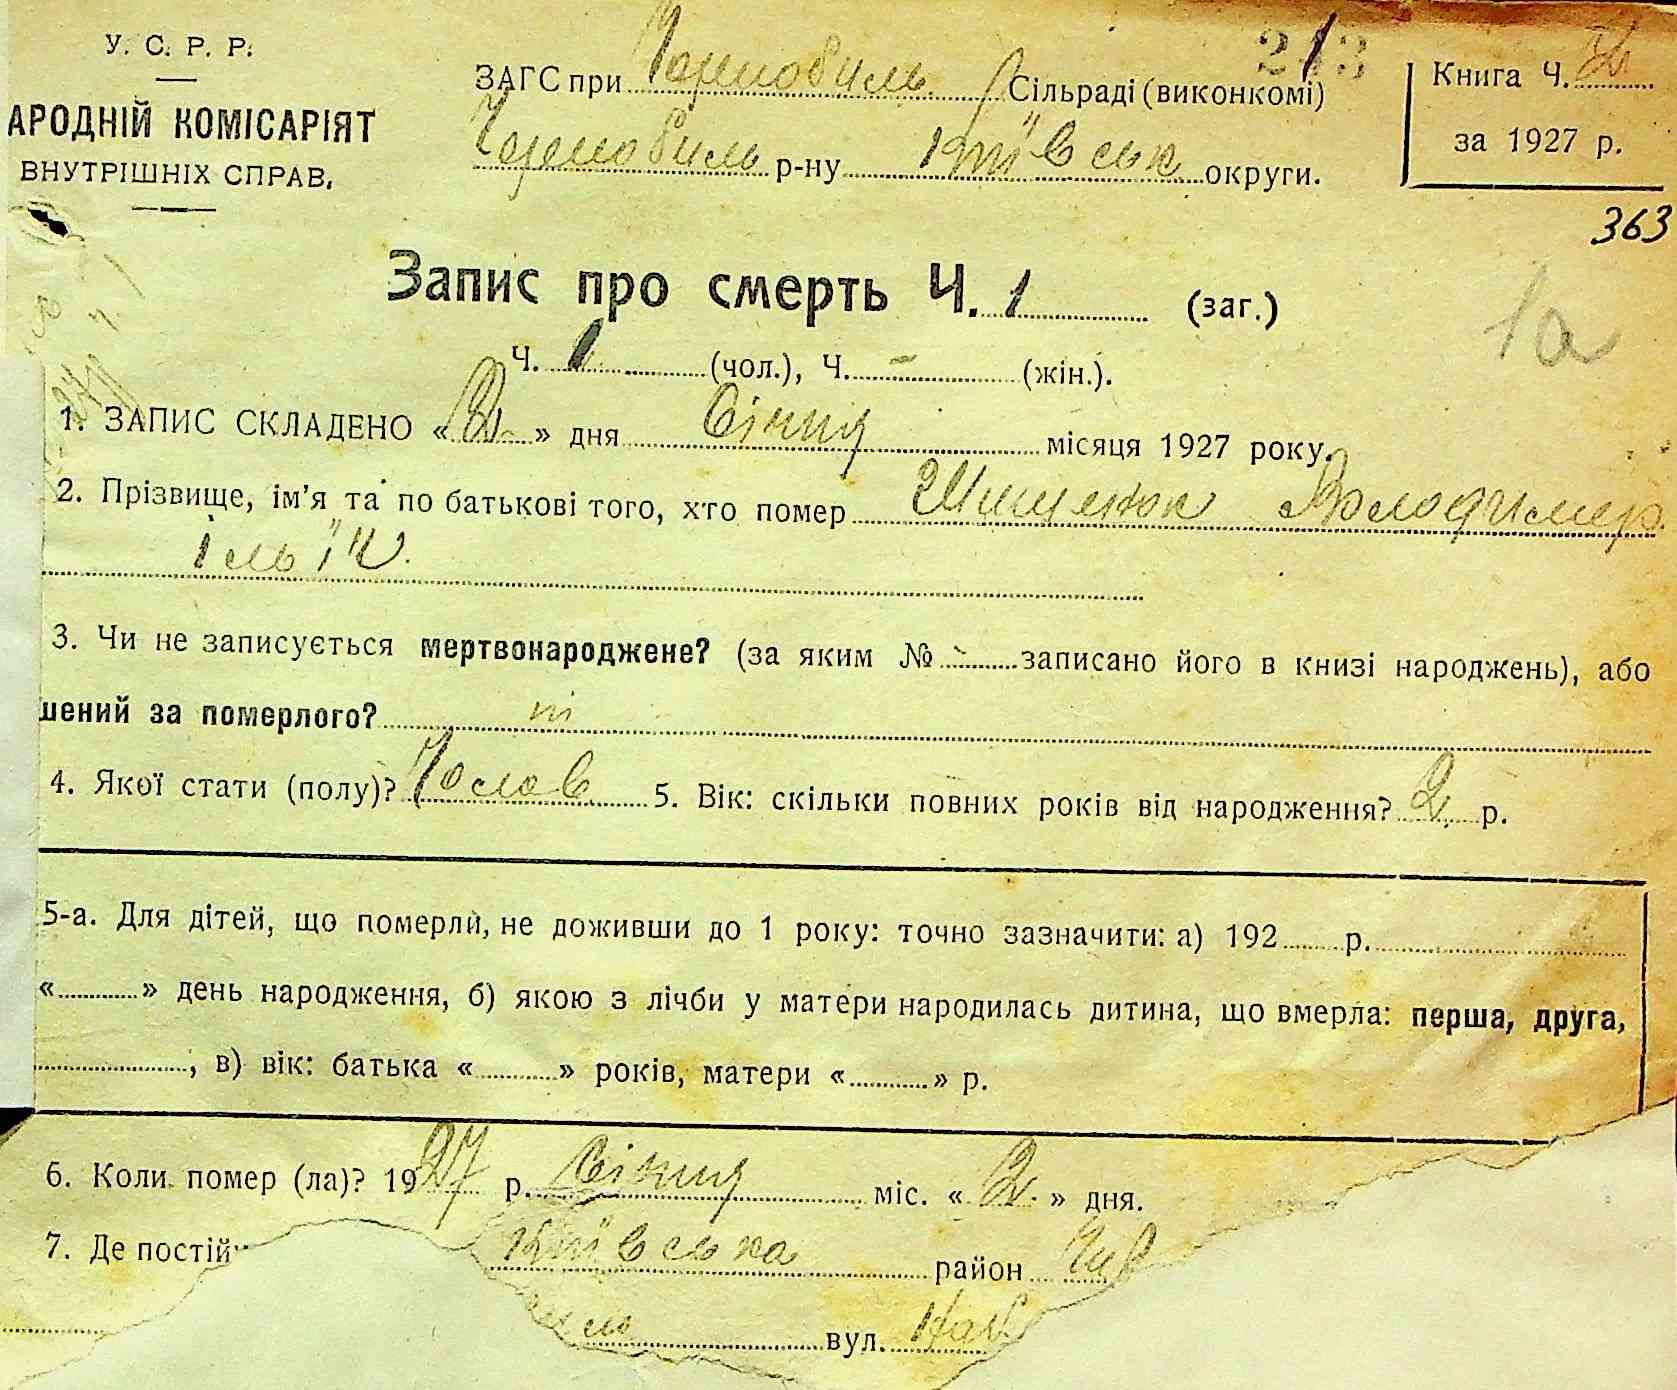 У. С. Р. Р.
АРОДНІЙ КОМІСАРІЯТ
ВНУТРІШНІХ СПРАВ.
ЗАГС при Чорнобиль Сільраді (виконкомі)
Чорнобиль р-ну Київськ округи.
Книга Ч.
за 1927 р.
363
Запис про смерть Ч. 1 (заг.)
1а
Ч. 1 (чол.), Ч. - (жін.).
1. ЗАПИС СКЛАДЕНО « 2 » дня Січня місяця 1927 року.
2. Прізвище, ім'я та по батькові того, хто помер Володимер
Ільїч.
3. Чи не записується мертвонароджене? (за яким № - записано його в книзі народжень), або
шений за померлого? ні
4. Якої стати (полу)? Чолов 5. Вік: скільки повних років від народження? 2 р.
5-а. Для дітей, що померли, не доживши до 1 року: точно зазначити: а) 192 р.
« » день народження, б) якою з лічби у матери народилась дитина, що вмерла: перша, друга,
, в) вік: батька « » років, матери « » р.
6. Коли помер (ла)? 1927 р. Січня міс. « 2 » дня.
7. Де постій Київська район
вул.